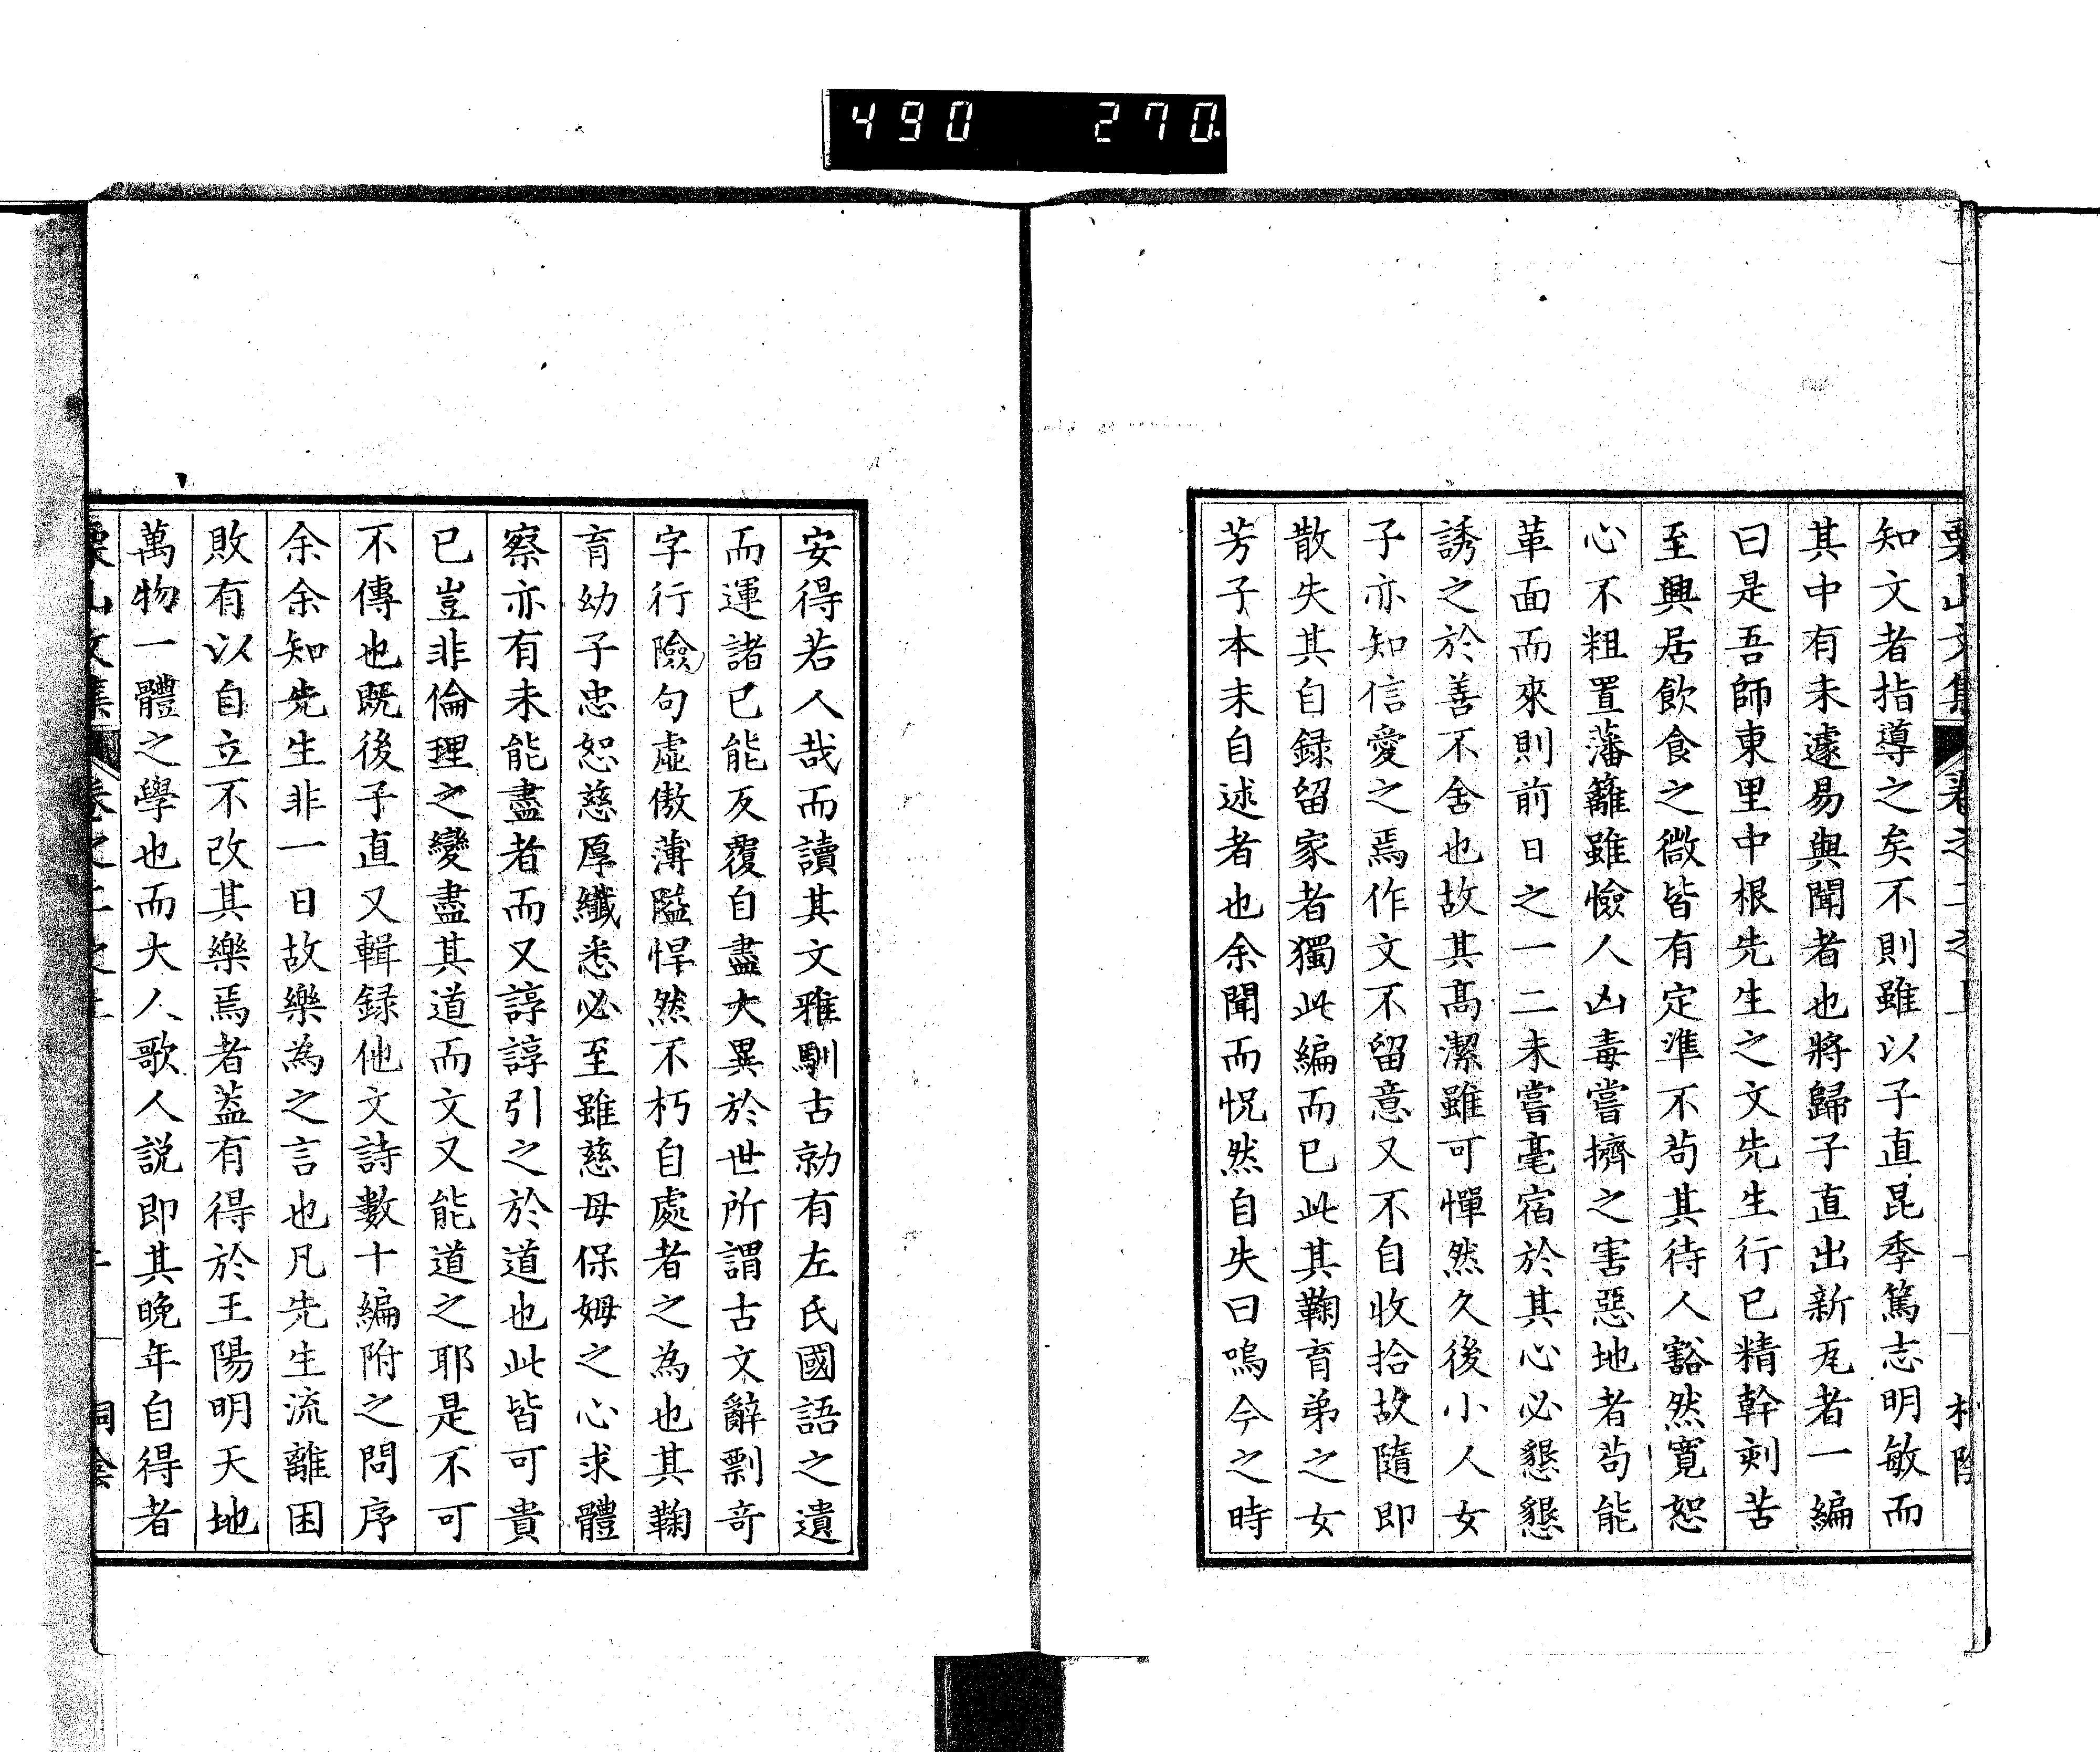 490 270
栗山文集 卷之二之上
知文者指導之矣不則雖以子直昆季篤志明敏而
其中有未遽易與聞者也將歸子直出新刻者一編
曰是吾師東里中根先生之文先生行已精幹刻苦
至興居飲食之微皆有定準不苟其待人豁然寬恕
心不粗置藩籬雖憸人凶毒嘗擠之害惡地者苟能
革面而來則前日之一二未嘗毫宿於其心必懇懇
誘之於善不舍也故其高潔雖可憚然久後小人女
子亦知信愛之焉作文不留意又不自收拾故隨即
散失其自録留家者獨此編而已此其鞠育弟之女
芳子本末自述者也余聞而怳然自失曰嗚今之時
安得若人哉而讀其文雅馴古勍有左氏國語之遺
而運諸已能反覆自盡大異於世所謂古文辭剽竒
字行險句虛傲薄隘悍然不朽自處者之為也其鞠
育幼子忠恕慈厚纖悉必至雖慈母保姆之心求體
察亦有未能盡者而又諄諄引之於道也此皆可貴
已豈非倫理之變盡其道而文又能道之耶是不可
不傳也既後子直又輯録他文詩數十編附之問序
余余知先生非一日故樂為之言也凡先生流離困
敗有以自立不改其樂焉者蓋有得於王陽明天地
萬物一體之學也而大人歌人説即其晚年自得者
栗山文集 卷之二之上